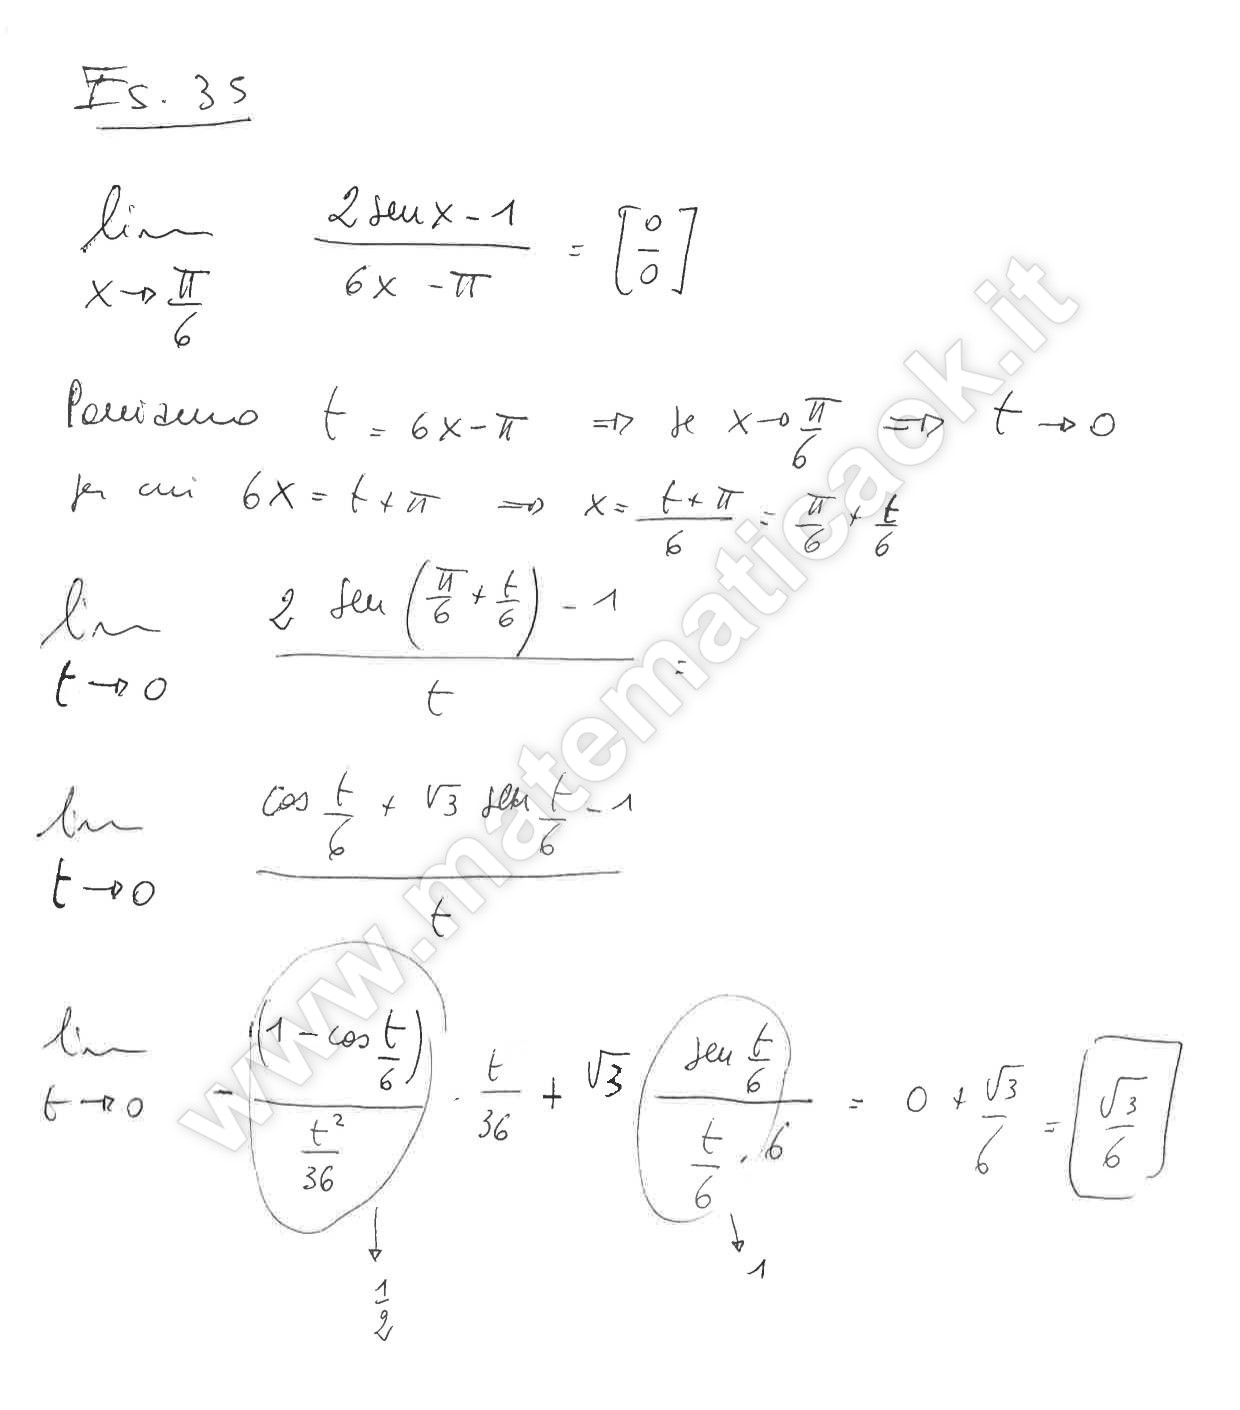 Es. 35
lim x→π/6 (2 sen x - 1)/(6x - π) = [0/0]
Poniamo t = 6x - π ⇒ se x→π/6 ⇒ t→0
per cui 6x = t + π ⇒ x = (t + π)/6 = π/6 + t/6
lim t→0 (2 sen (π/6 + t/6) - 1)/t =
lim t→0 (cos t/6 + √3 sen t/6 - 1)/t
lim t→0 - (1 - cos t/6)/(t²/36) · t/36 + √3 (sen t/6)/(t/6 · 6) = 0 + √3/6 = √3/6
1/2
1
www.matematicaok.it